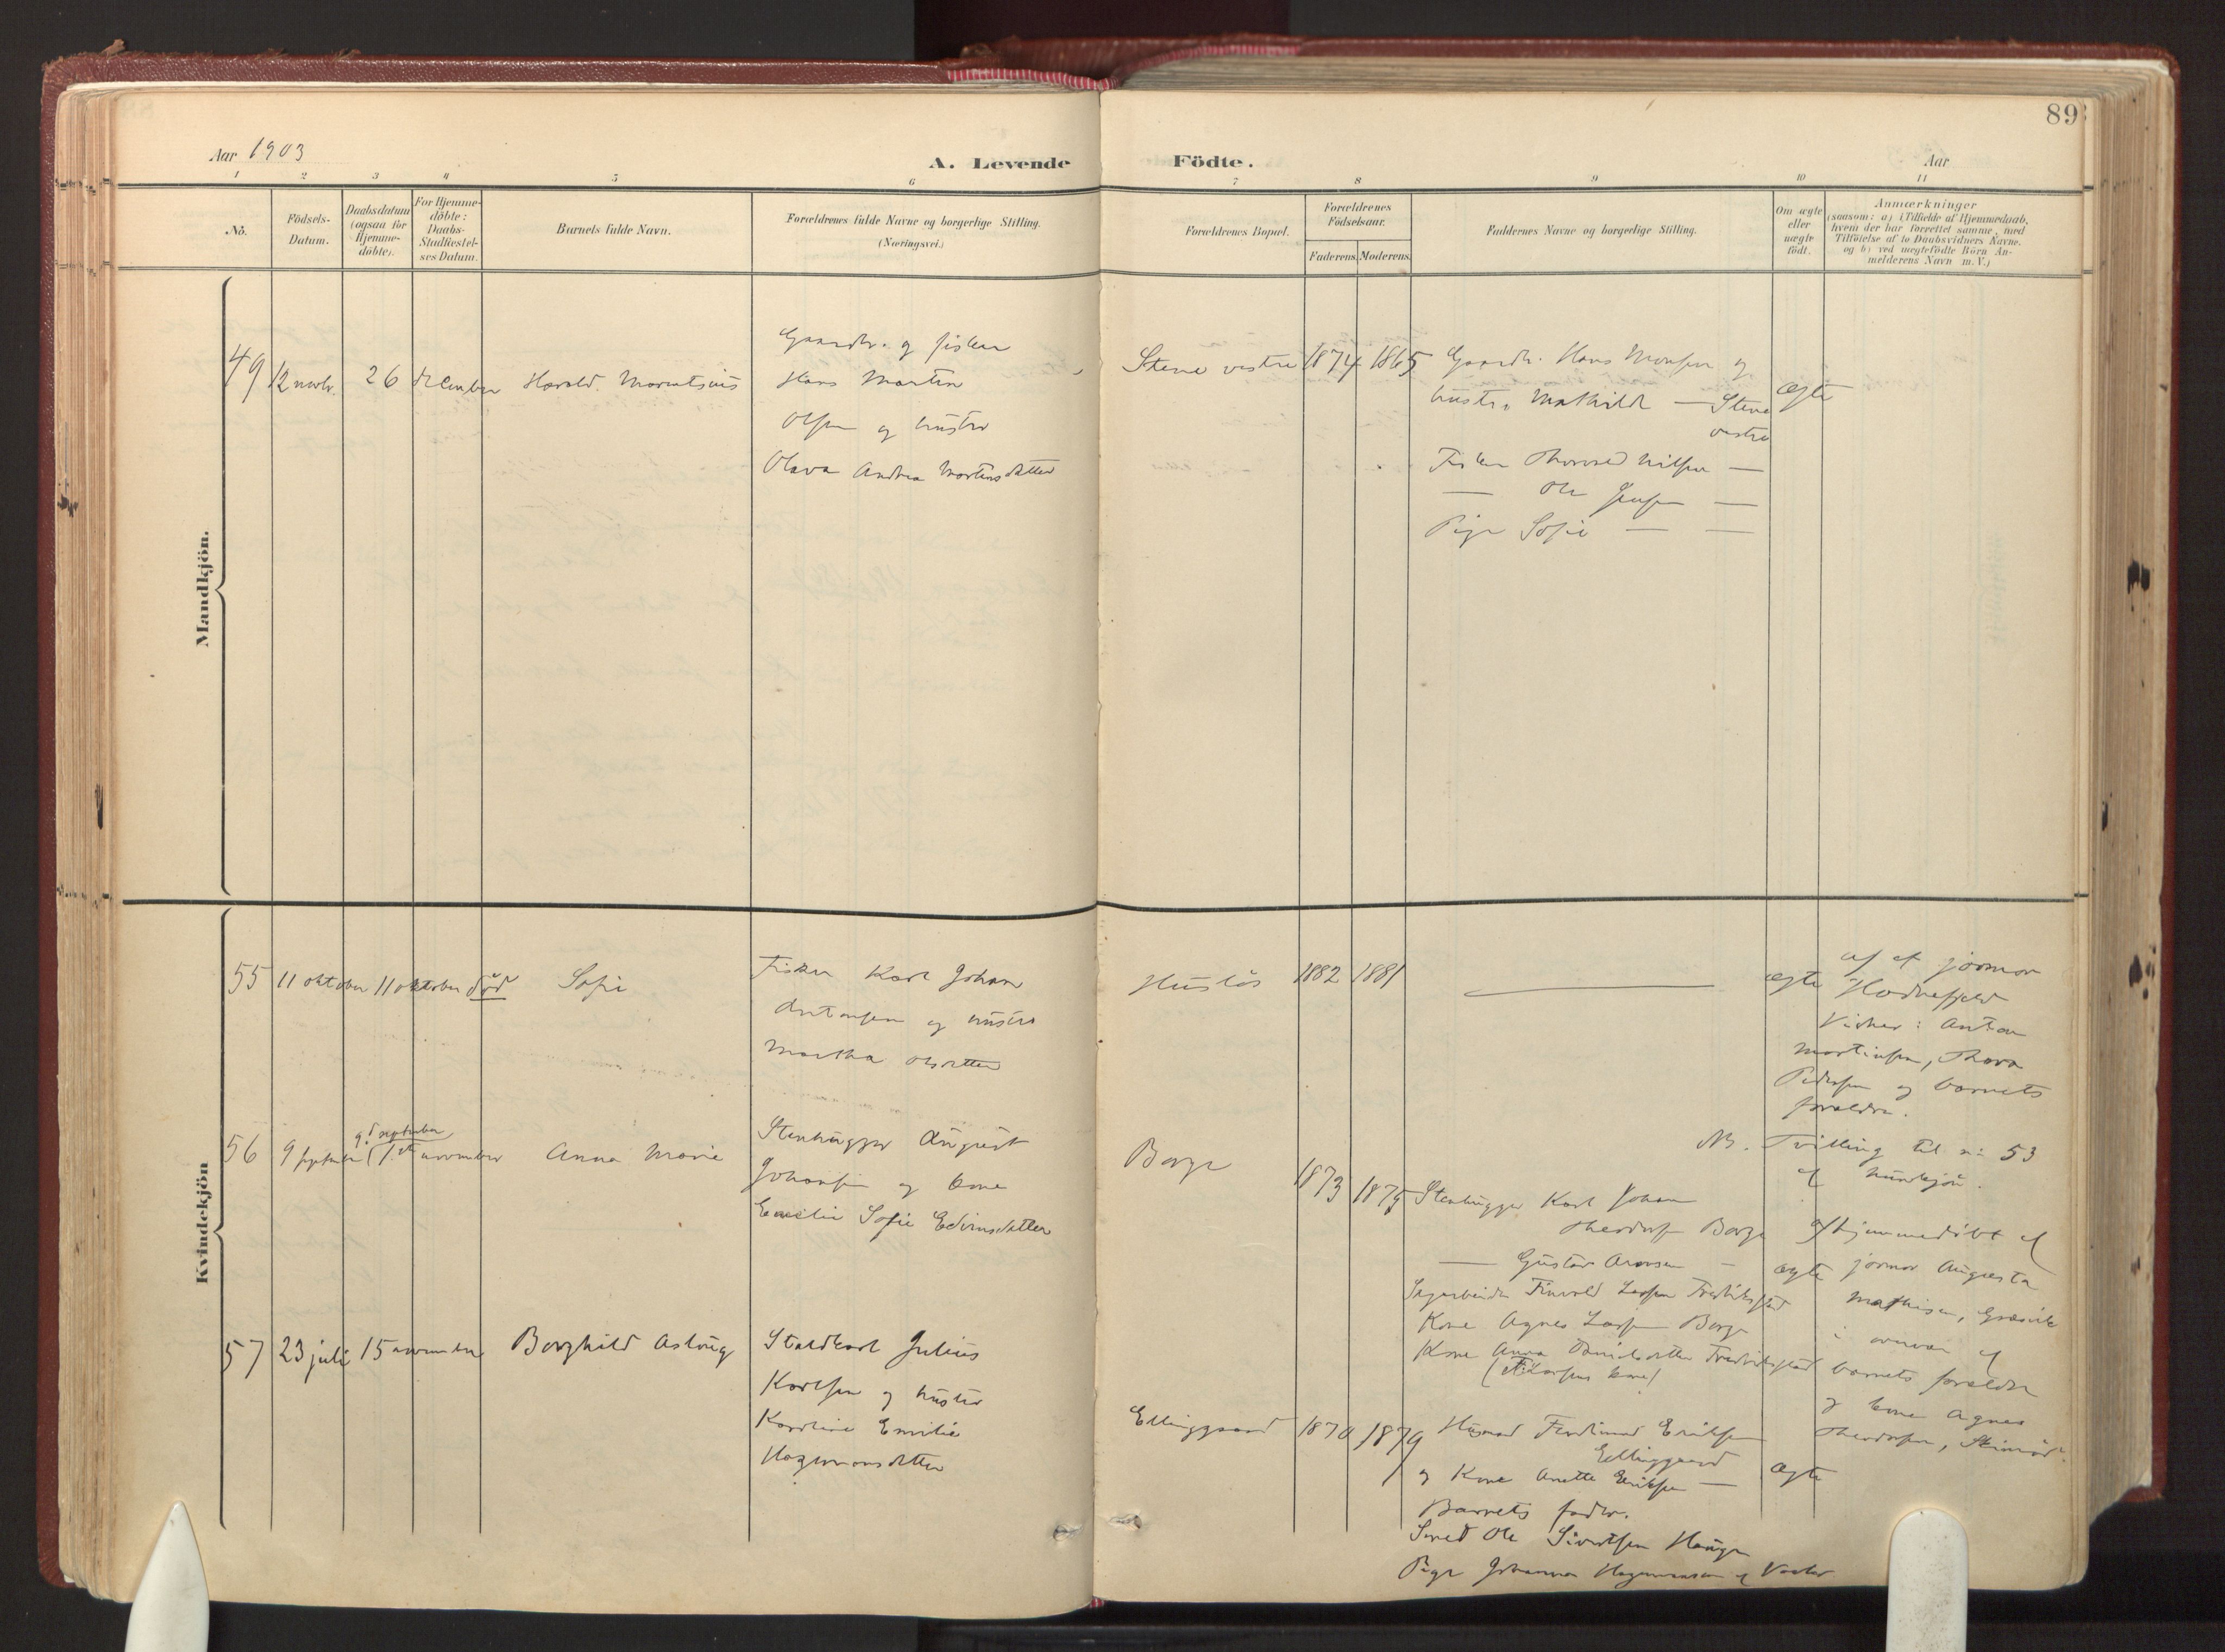 89
Aar 1903
A. Levende Födte.
Aar
1 2 3 4 5 6 7 8 9 10 11
No.
Födsels-
Datum.
Daabsdatum
(ogsaa for
Hjemme-
döbte).
For Hjemme-
döbte:
Daabs-
Stadfæstel-
ses Datum.
Barnets fulde Navn.
Forældrenes fulde Navne og borgerlige Stilling.
(Næringsvei.)
Forældrenes Bopæl.
Forældrenes
Födselsaar.
Faderens. Moderens.
Faddernes Navne og borgerlige Stilling.
Om ægte
eller
uægte
födt.
Anmærkninger
(saasom: a) i Tilfælde af Hjemmedaab,
hvem der har forrettet samme, med
Tilföielse af to Daabsvidners Navne,
og b) ved uægtefödte Börn An-
melderens Navn m. V.)
Mandkjön.
49
12 novbr.
26 december
Harald
Gaardbr. og fisker
Hans Martin
Olsen og hustru
Olava Andrea Martinsdatter
Stene vestre
1874 1865
Gaardbr. Hans Monsen og
hustru Mathilde — Stene
vestre
Fisker Thorvald Nilsen —
— Ole Jensen —
Pige Sofie — —
ægte
Kvindekjön
55
11 oktober
11 oktober
död
Sofie
Fisker Karl Johan
Antonsen og hustru
Martha Olsdatter
Huslös
1882 1881
ægte
af jormor
Vidner: Anton
Martinsen, Thora
Pedersen og barnets
forældre.
56
9 september
9d september
(1ste november
Anna Marie
Stenhugger August
Johansen og kone
Emilie Sofie Edvinsdatter
Borge
1873 1875
NB. Tvilling til no 53
af kundkjön.
Stenhugger Karl Johan
Theodorsen Borge
— Gustav Aronsen —
Larsen Fredrikstad
Kone Agnes Larsen Borge
Kone Anna Danielsdatter Fredrikstad
ægte
hjemmedöbt af
jormor Augusta
Mathisen, Græsvik
i overvær af
barnets forældre
og kone Agnes
Theodorsen,
57
23 juli
15 november
Borghild Aslaug
Staldkarl Julius
Karlsen og hustru
Karoline Emilie
Hagemansdatter
Ellinggaard
1870 1879
Husmand Ferdinand Eriksen
Ellinggaard
og Kone Anette Eriksen —
Barnets fader.
Smed Ole Sivertsen Hauge
Pige Johanna
ægte